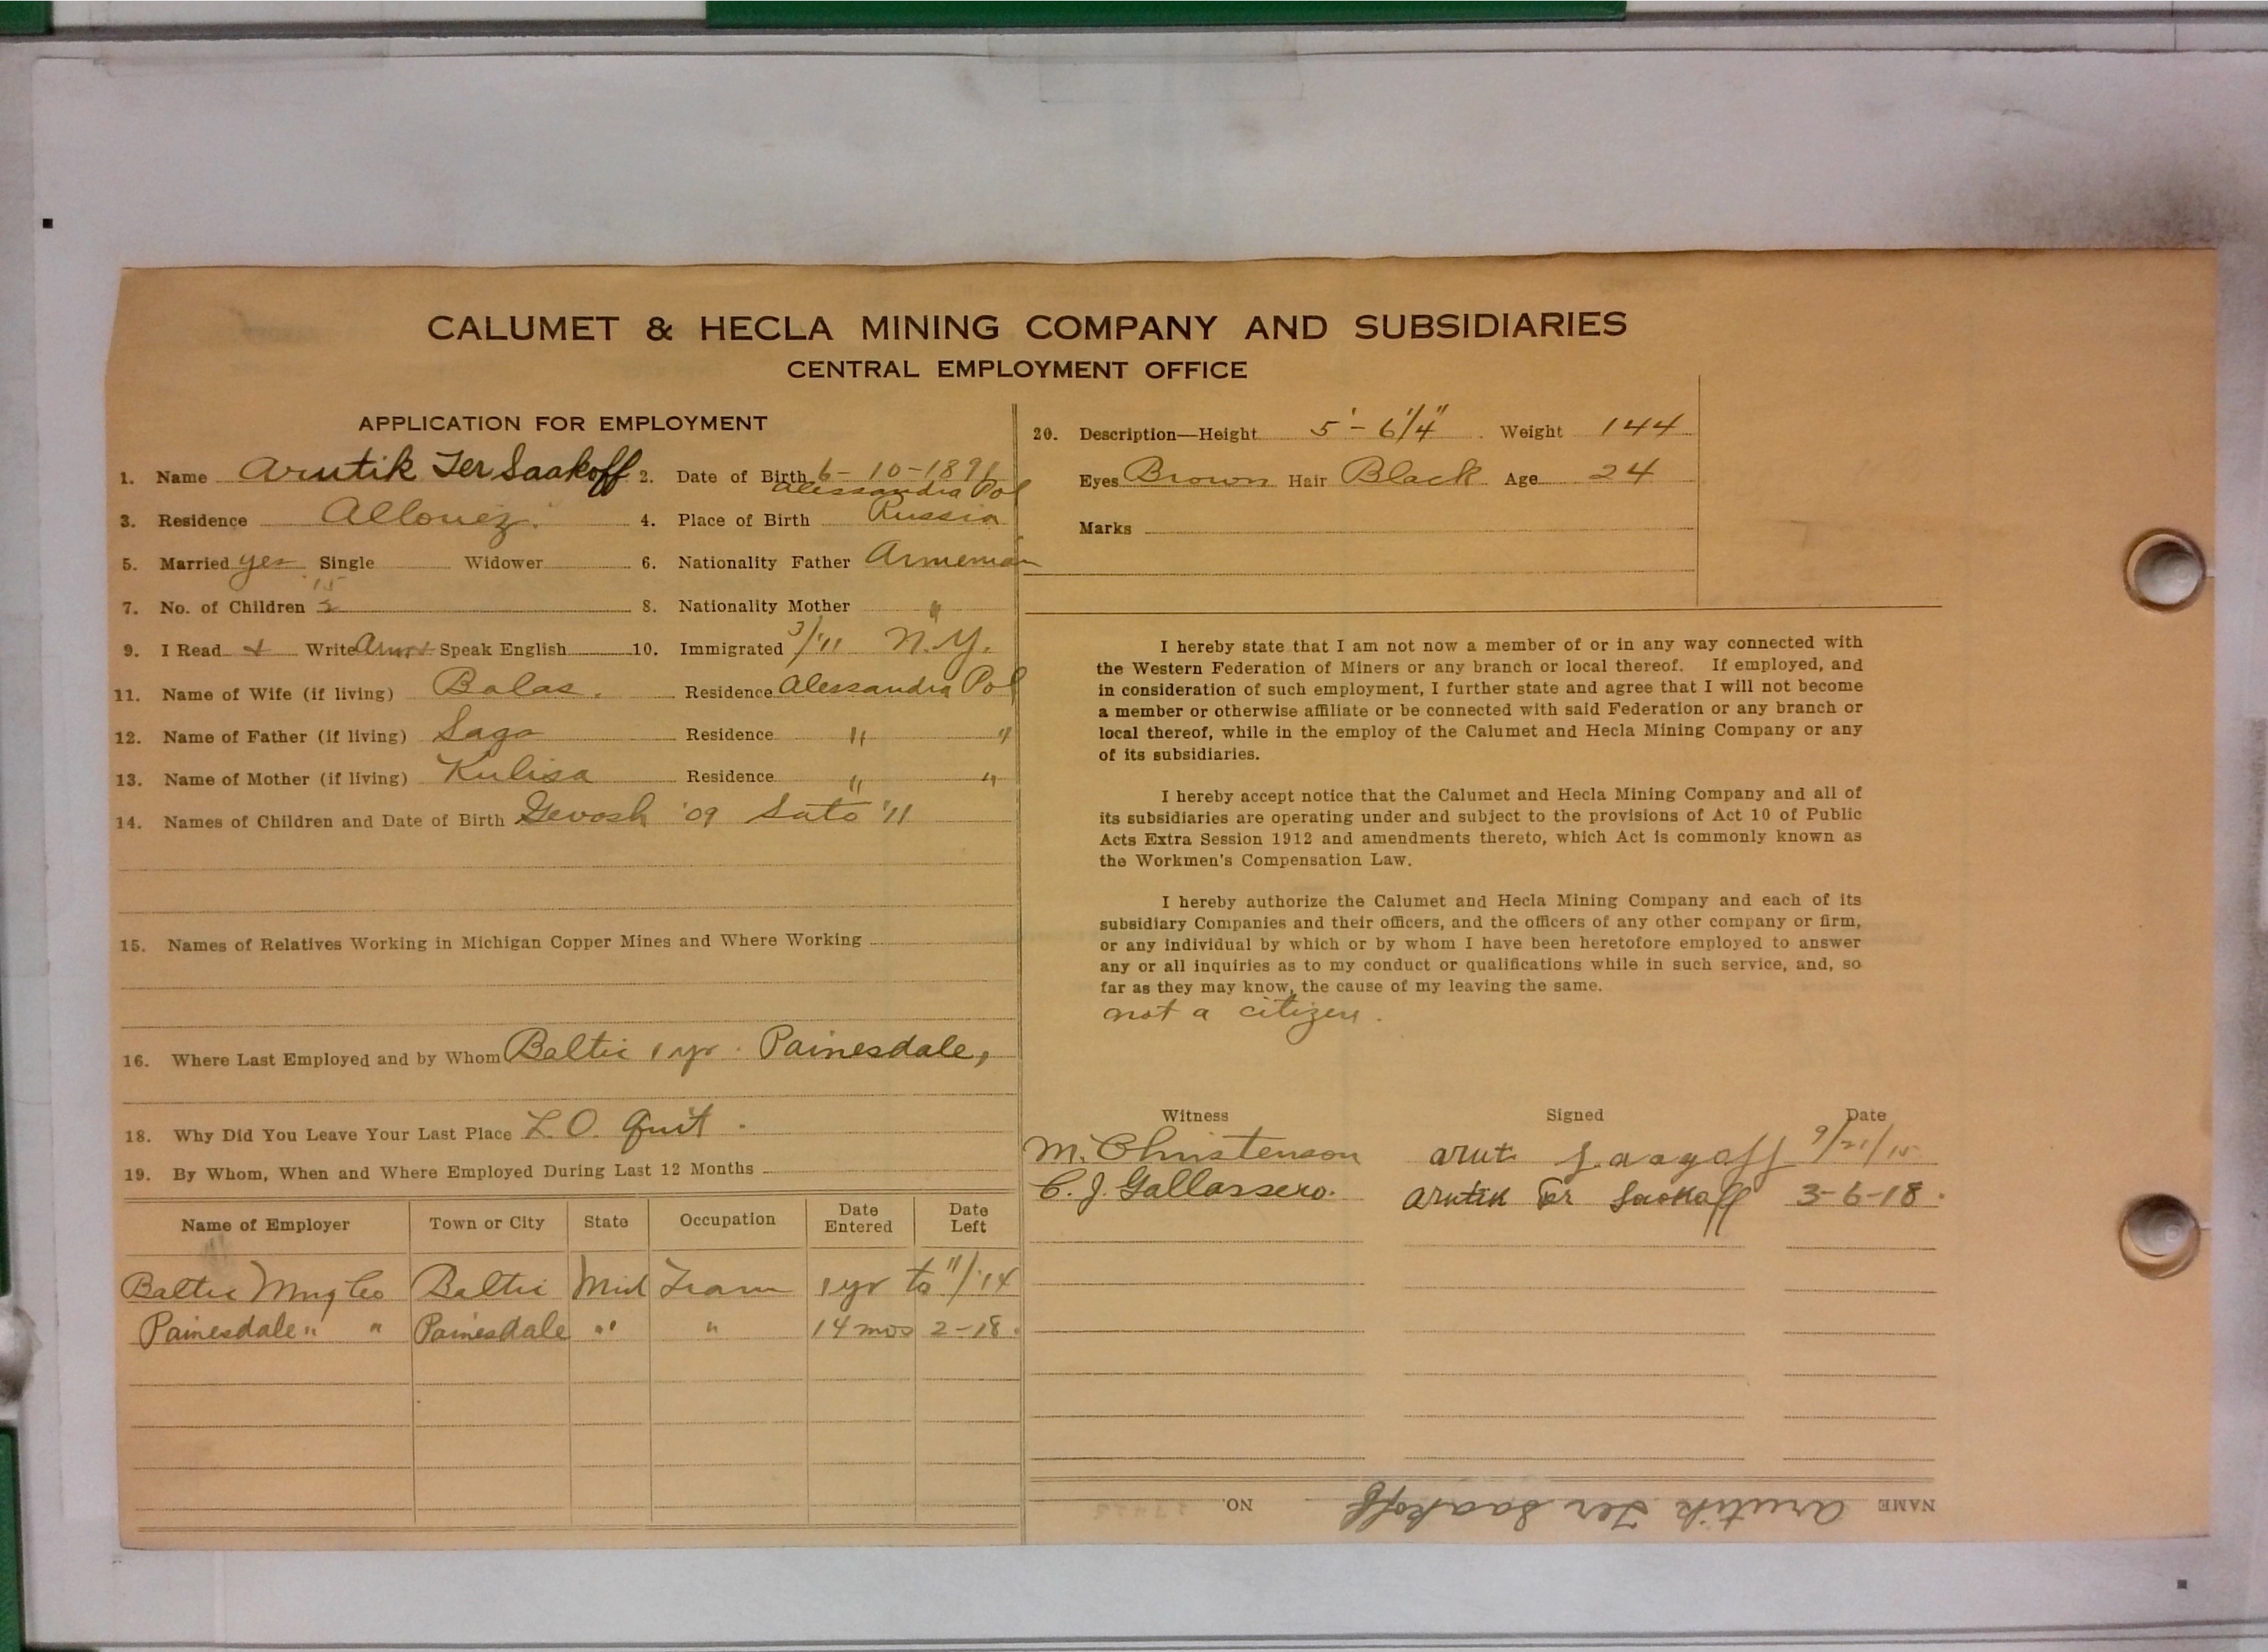 CALUMET & HECLA MINING COMPANY AND SUBSIDIARIES
CENTRAL EMPLOYMENT OFFICE
APPLICATION FOR EMPLOYMENT
1. Name Arutik Ter Saakoff 2. Date of Birth 6-10-1891
Alessandra Pol
3. Residence Allouez. 4. Place of Birth Russia
5. Married yes Single Widower 6. Nationality Father Armenian
7. No. of Children 8. Nationality Mother "
9. I Read & Write Speak English 10. Immigrated 3/'11 N.Y.
11. Name of Wife (if living) Balas. Residence Alessandra Pol
12. Name of Father (if living) Sago Residence " "
13. Name of Mother (if living) Kulisa Residence " "
14. Names of Children and Date of Birth Gevosh '09 Sato '11
15. Names of Relatives Working in Michigan Copper Mines and Where Working
16. Where Last Employed and by Whom Baltic 1 yr. Painesdale,
18. Why Did You Leave Your Last Place L.O. Quit.
19. By Whom, When and Where Employed During Last 12 Months
Name of Employer Town or City State Occupation Date Entered Date Left
Baltic Mng Co Baltic Mich Tram 1 yr to 11/'14
Painesdale " " Painesdale " " 14 mos 2-18.
20. Description—Height 5'-6 1/4" Weight 144
Eyes Brown Hair Black Age 24
Marks
I hereby state that I am not now a member of or in any way connected with
the Western Federation of Miners or any branch or local thereof. If employed, and
in consideration of such employment, I further state and agree that I will not become
a member or otherwise affiliate or be connected with said Federation or any branch or
local thereof, while in the employ of the Calumet and Hecla Mining Company or any
of its subsidiaries.
I hereby accept notice that the Calumet and Hecla Mining Company and all of
its subsidiaries are operating under and subject to the provisions of Act 10 of Public
Acts Extra Session 1912 and amendments thereto, which Act is commonly known as
the Workmen's Compensation Law.
I hereby authorize the Calumet and Hecla Mining Company and each of its
subsidiary Companies and their officers, and the officers of any other company or firm,
or any individual by which or by whom I have been heretofore employed to answer
any or all inquiries as to my conduct or qualifications while in such service, and, so
far as they may know, the cause of my leaving the same.
not a citizen.
Witness Signed Date
M. Christenson Arut Saagoff 9/21/15
C. J. Gallassero. Arutik Ter Saakoff 3-6-18.
NAME Arutik Ter Saakoff NO.